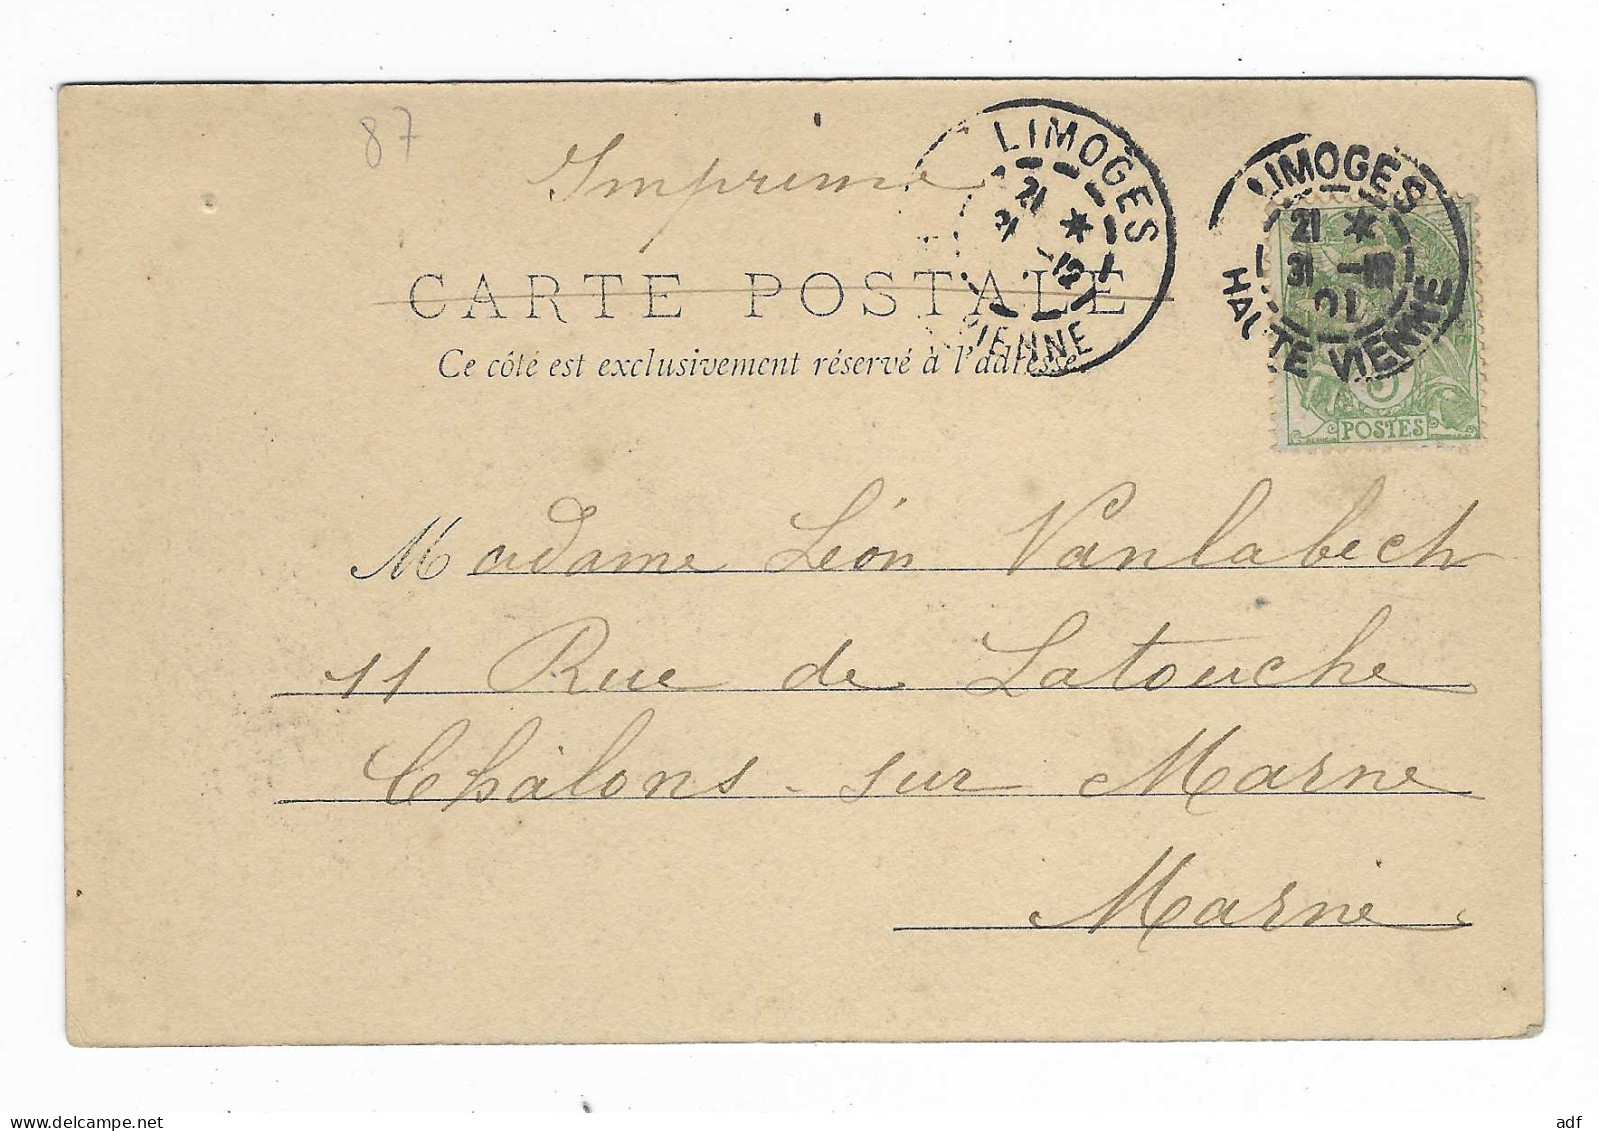 87
Imprimé
CARTE POSTALE
Ce côté est exclusivement réservé à l'adresse
LIMOGES
21 *
31 -12
VIENNE
LIMOGES
21 *
31 -12
01
HAUTE VIENNE
5
POSTES
Madame Léon Vanlabech
11 Rue de Latouche
Châlons-sur Marne
Marne
adf